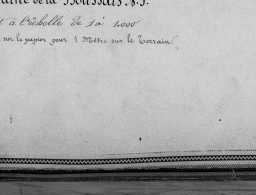 de la Boussais
à l'échelle de 1 à 1000
sur le papier pour 1 Mètre sur le Terrain